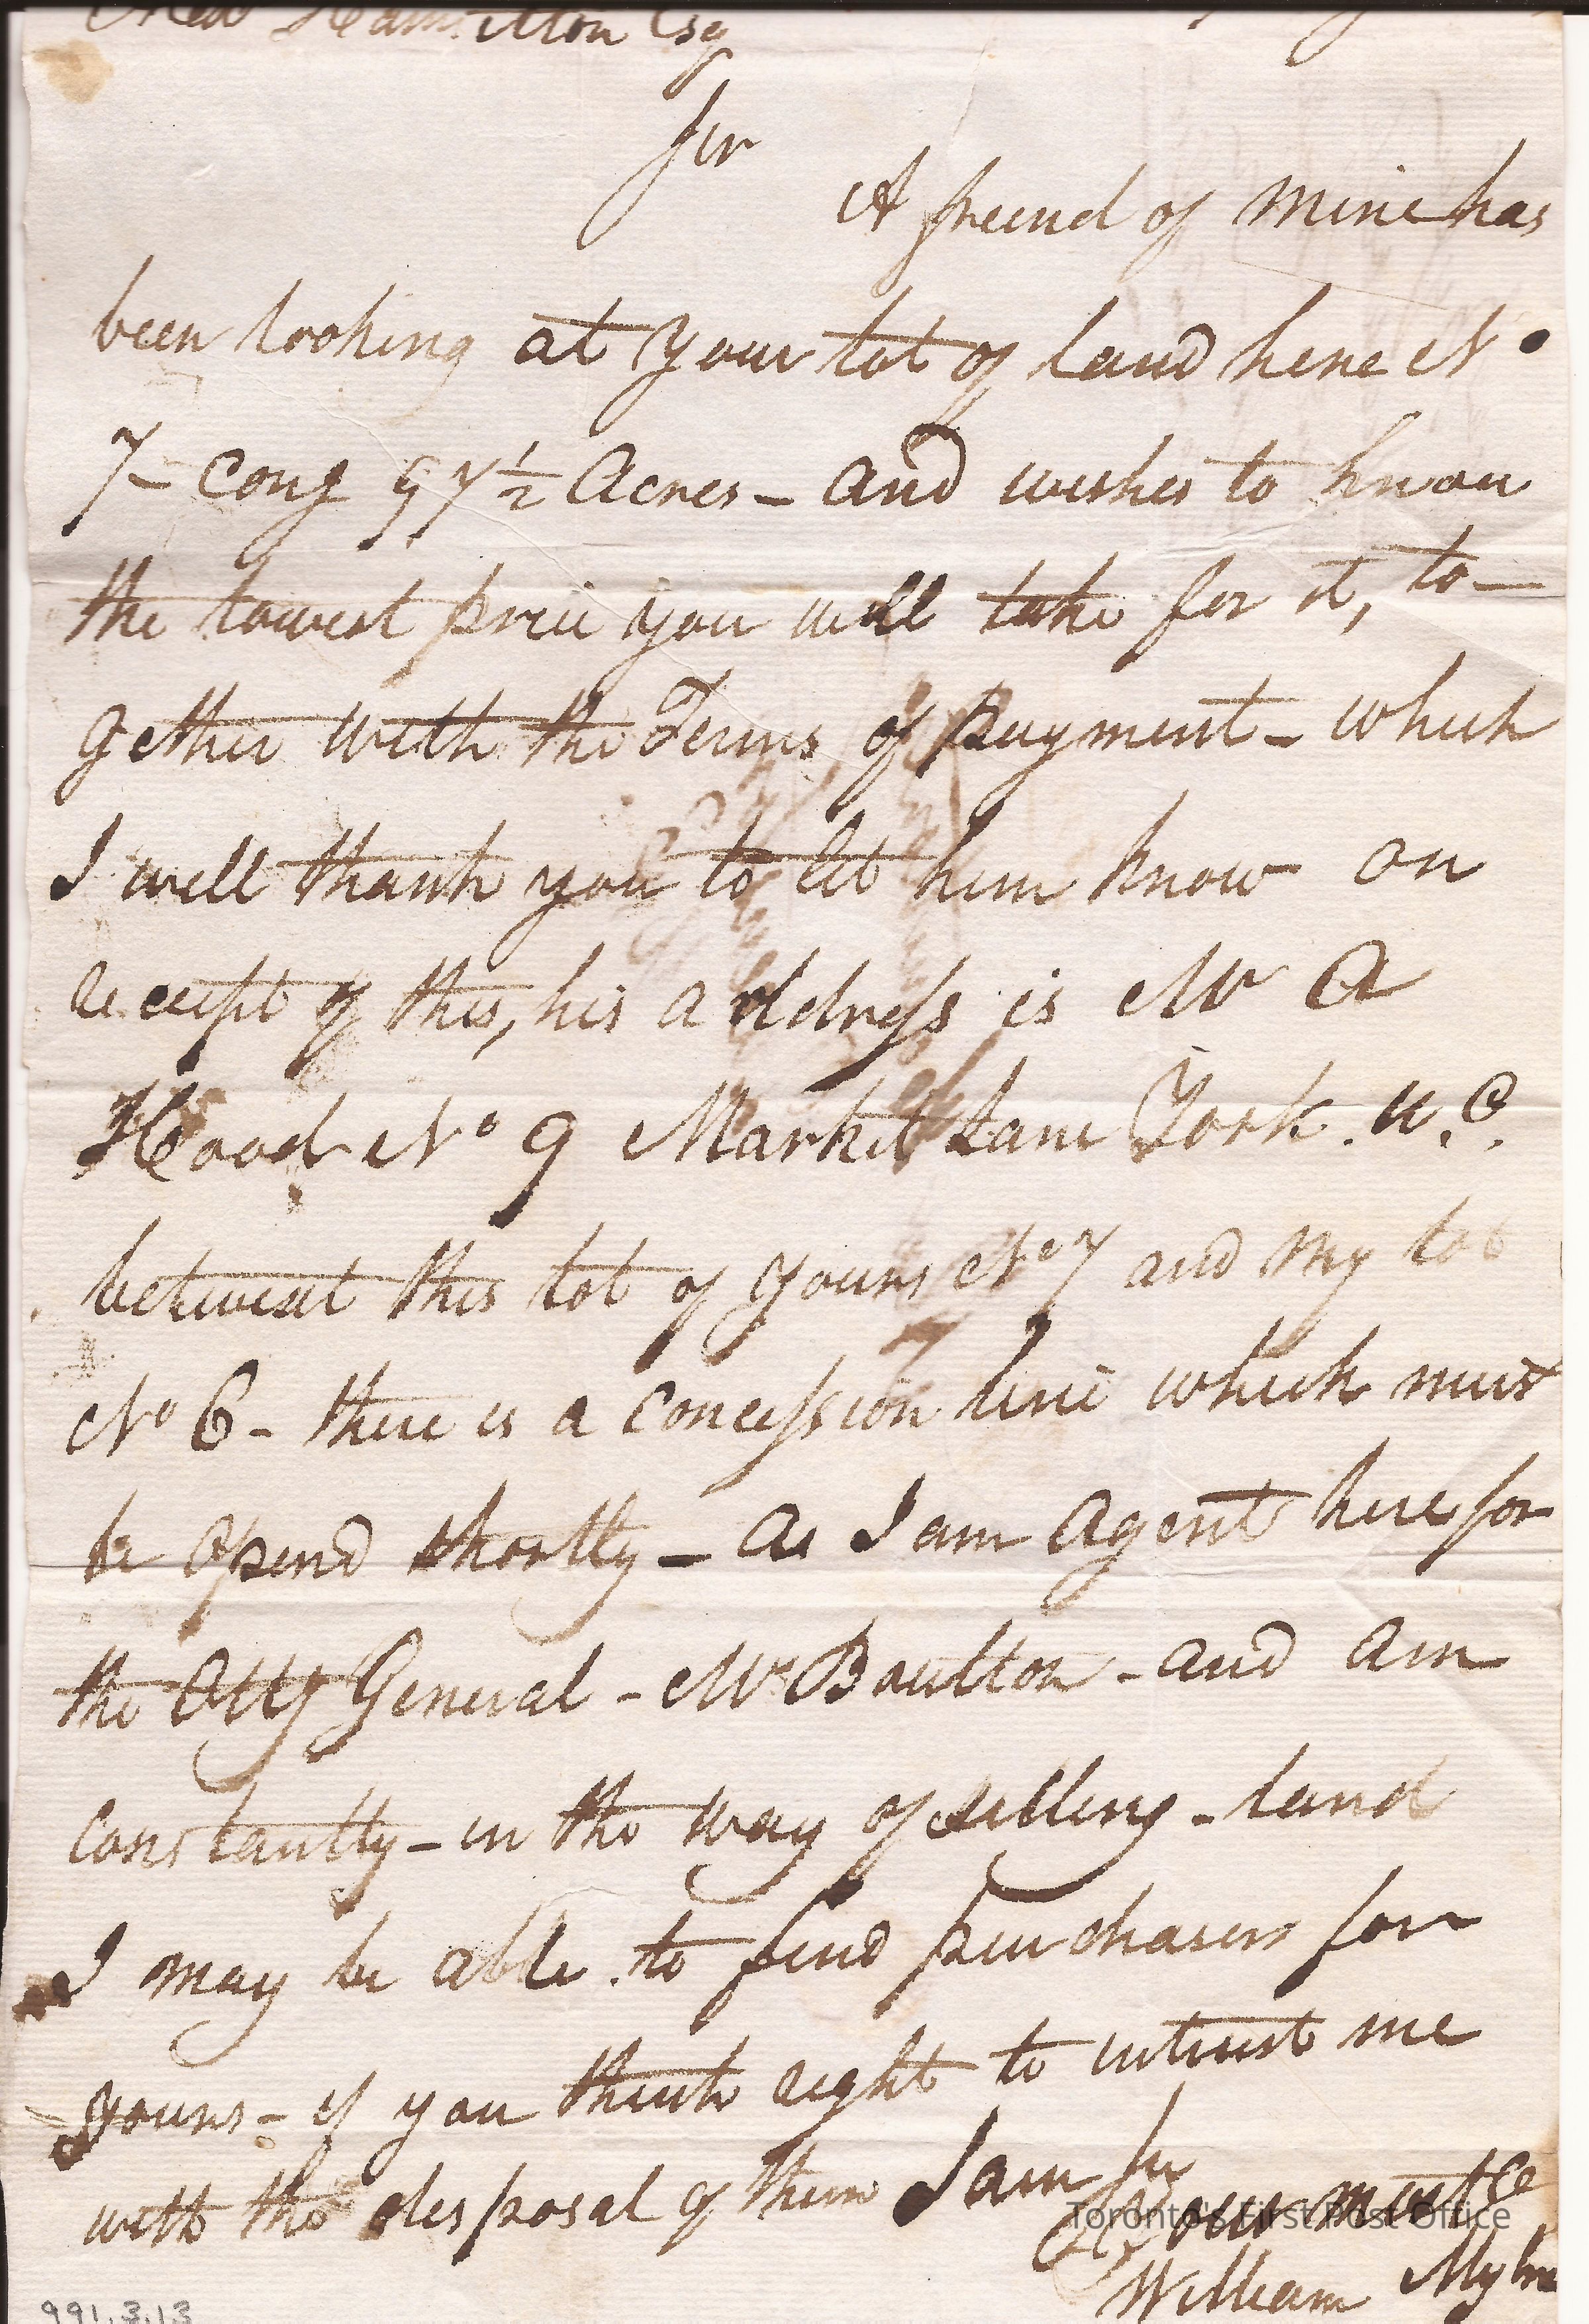 Hamilton Esq
Sir
A freend of mine has
been looking at your lot of land here No
7 - Cong 97½ Acres - and wishes to know
the lowest price you will take for it, to-
gether with the Terms of payment - which
I will thank you to let him know on
receipt of this, his address is Mr A
Hood No 9 Market Lane York. U.C.
betwext this lot of yours No 7 and my lot
No 6 - there is a concession line which must
be opend shortly - as I am agent here for
the Atty General - Mr Boulton - and am
constantly - in the way of selling - land
I may be able to find purchasers for
yours - if you think right to intrust me
with the disposal of them I am Sir
Your most
William
Toronto's First Post Office
991.3.13